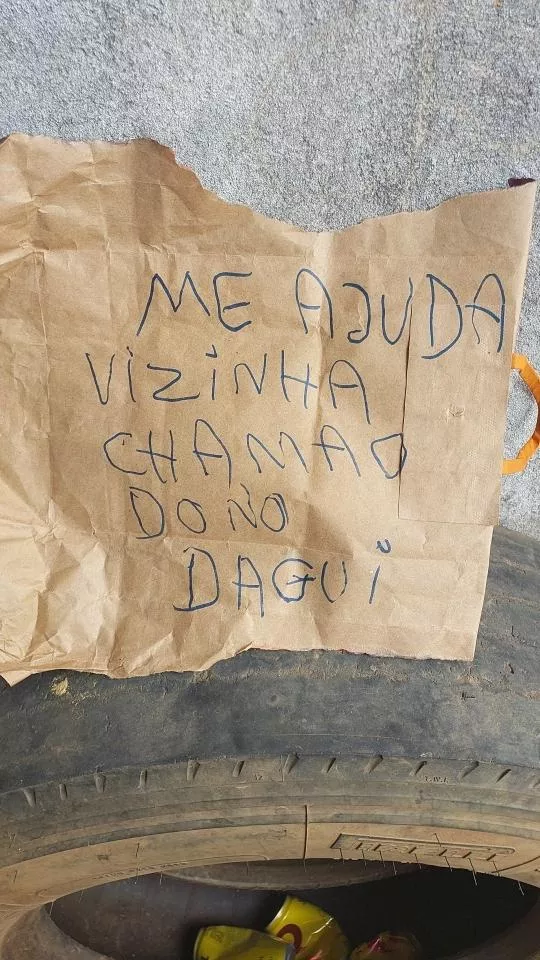 ME AJUDA
VIZINHA
CHAMA O
DONO
DAGUI
T.W.I.